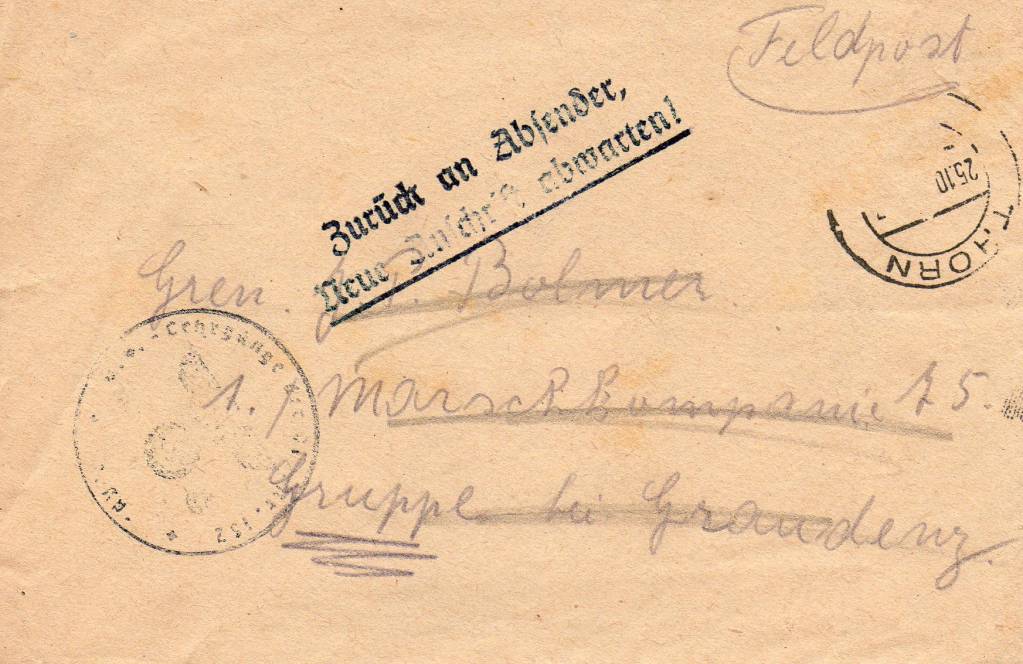 Feldpost
Zurück an Absender,
Neue Anschrift abwarten!
THORN
25.10
Gren. Bolmer.
1. / Marschkompanie
Gruppe bei Graudenz.
Lehrgänge